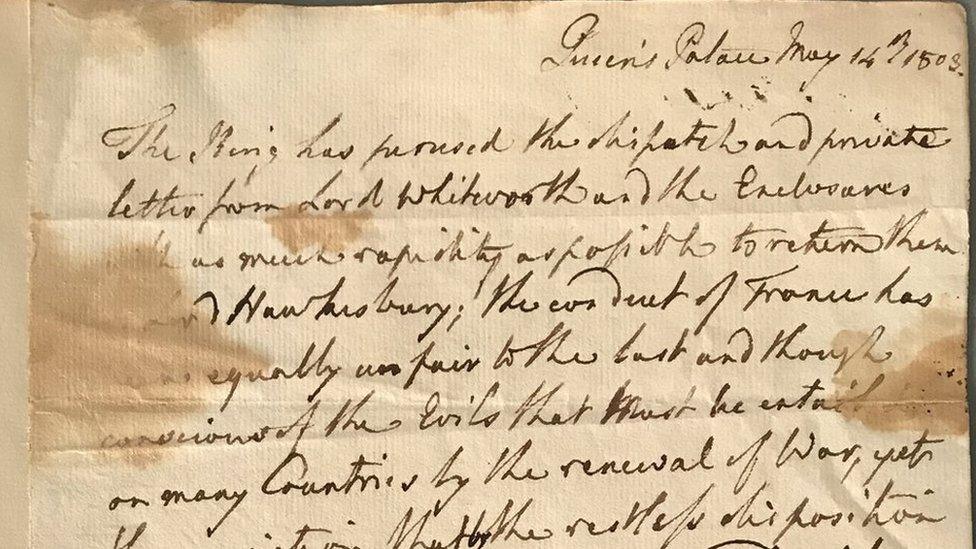 Queen's Palace May 14th 1803.
The King has perused the dispatch and private
letter from Lord Whitworth and the Enclosures
as much rapidity as possible to return them
Hawkesbury; the conduct of France has
equally unfair to the last and though
conscious of the Evils that must be entailed
on many Countries by the renewal of War, yet
that the restless disposition